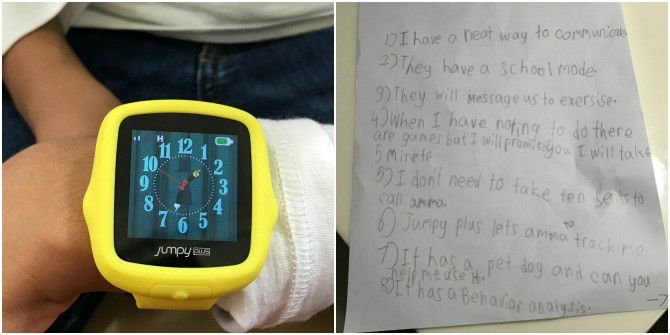 H
11 12 1
10 2
9 3
8 4
7 6 5
Jumpy PLUS
1) I have a neat way to communicate
2) They have a school mode.
3) They will Message us to exersise.
4) When I have noting to do there
are games but I will promise you I will take
5 Mirets
5) I don't need to take ten sents to
call amma.
6) Jumpy plus lets amma to track me.
7) It has a pet dog and can you
help me use it.
8) It has a Behavior analysis.